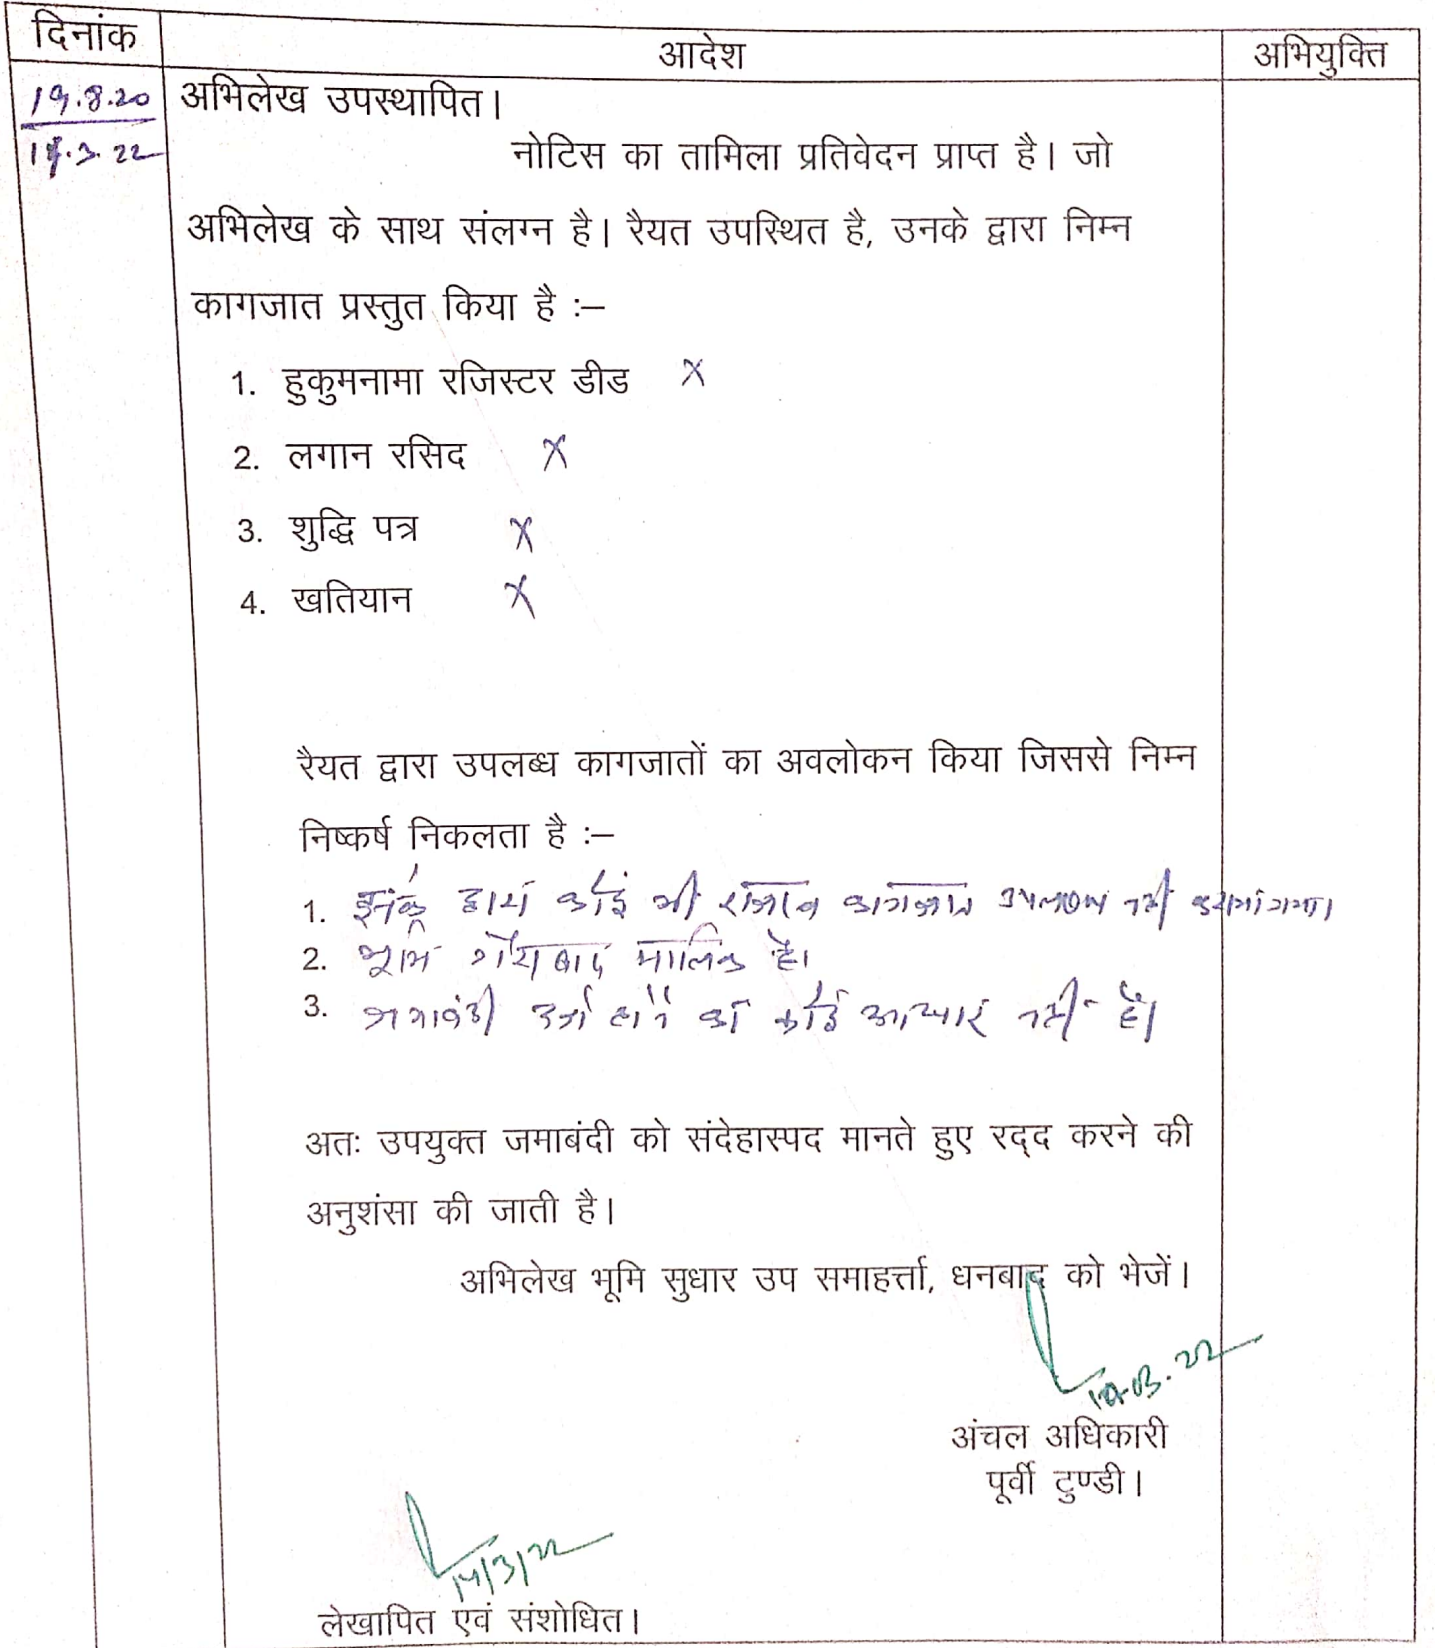 दिनांक
आदेश
अभियुक्ति
19.8.20
अभिलेख उपस्थापित।
14.3.22
नोटिस का तामिला प्रतिवेदन प्राप्त है। जो
अभिलेख के साथ संलग्न है। रैयत उपस्थित है, उनके द्वारा निम्न
कागजात प्रस्तुत किया है :–
1. हुकुमनामा रजिस्टर डीड X
2. लगान रसिद X
3. शुद्धि पत्र X
4. खतियान X
रैयत द्वारा उपलब्ध कागजातों का अवलोकन किया जिससे निम्न
निष्कर्ष निकलता है :–
1. इनके द्वारा कोई भी कागजात उपलब्ध नहीं कराया गया।
2. भूमि गैराबाद मालिक है।
3. जमाबंदी दर्ज होने का कोई आधार नहीं है।
अतः उपयुक्त जमाबंदी को संदेहास्पद मानते हुए रद्द करने की
अनुशंसा की जाती है।
अभिलेख भूमि सुधार उप समाहर्त्ता, धनबाद को भेजें।
अंचल अधिकारी
पूर्वी टुण्डी।
14/3/22
लेखापित एवं संशोधित।